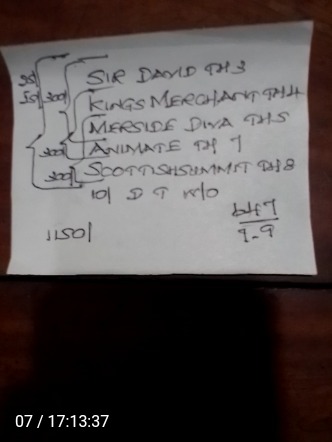 SIR DAVID TH 3
KINGS MERCHANT TH 4
MERSIDE DIVA TH 5
ANIMATE TH 7
SCOTTISH SUMMIT TH 8
10/ D T W/O
1150/
9-9
300/
300/
300/
07 / 17:13:37